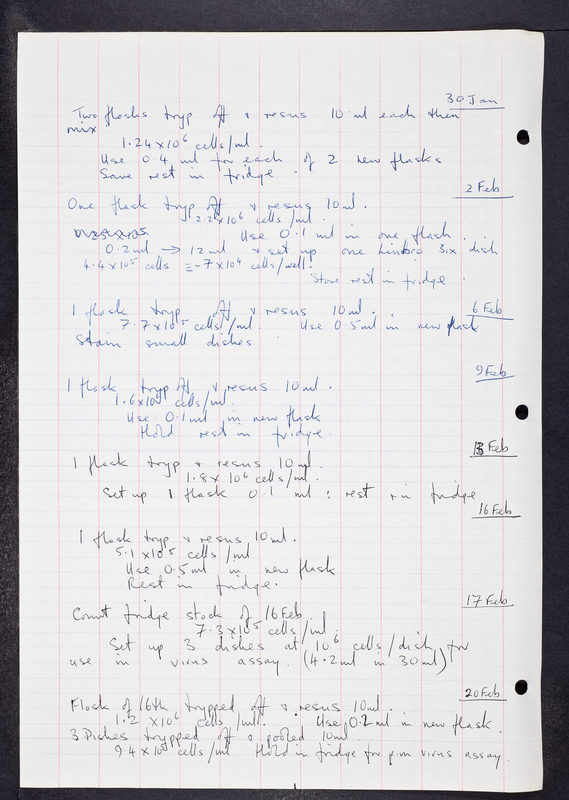 30 Jan
Two flasks tryp off & resus 10 ml each then
mix
1.24 x 10⁶ cells/ml.
Use 0.4 ml for each of 2 new flasks
Save rest in fridge.
2 Feb
One flask tryp off & resus 10 ml.
2.2 x 10⁶ cells/ml.
Use 0.1 ml in one flask.
0.2 ml → 12 ml & set up one Linbro six dish
4.4 x 10⁵ cells ≡ ~7 x 10⁴ cells/well.
Store rest in fridge.
6 Feb
1 flask tryp off & resus 10 ml.
7.7 x 10⁵ cells/ml. Use 0.5 ml in new flask
Stain small dishes
9 Feb
1 flask tryp off & resus 10 ml.
1.6 x 10⁶ cells/ml.
Use 0.1 ml in new flask
Hold rest in fridge.
13 Feb
1 flask tryp & resus 10 ml.
1.8 x 10⁶ cells/ml.
Set up 1 flask 0.1 ml : rest in fridge
16 Feb
1 flask tryp & resus 10 ml.
5.1 x 10⁵ cells/ml
Use 0.5 ml in new flask
Rest in fridge.
17 Feb
Count fridge stock of 16 Feb
7.3 x 10⁵ cells/ml.
Set up 3 dishes at 10⁶ cells/dish for
use in virus assay. (4.2 ml in 30 ml)
20 Feb
Flask of 16th trypped off & resus 10 ml.
1.2 x 10⁶ cells/ml. Use 0.2 ml in new flask.
3 Dishes trypped off & pooled 10 ml
9.4 x 10⁵ cells/ml Hold in fridge for p.m virus assay.